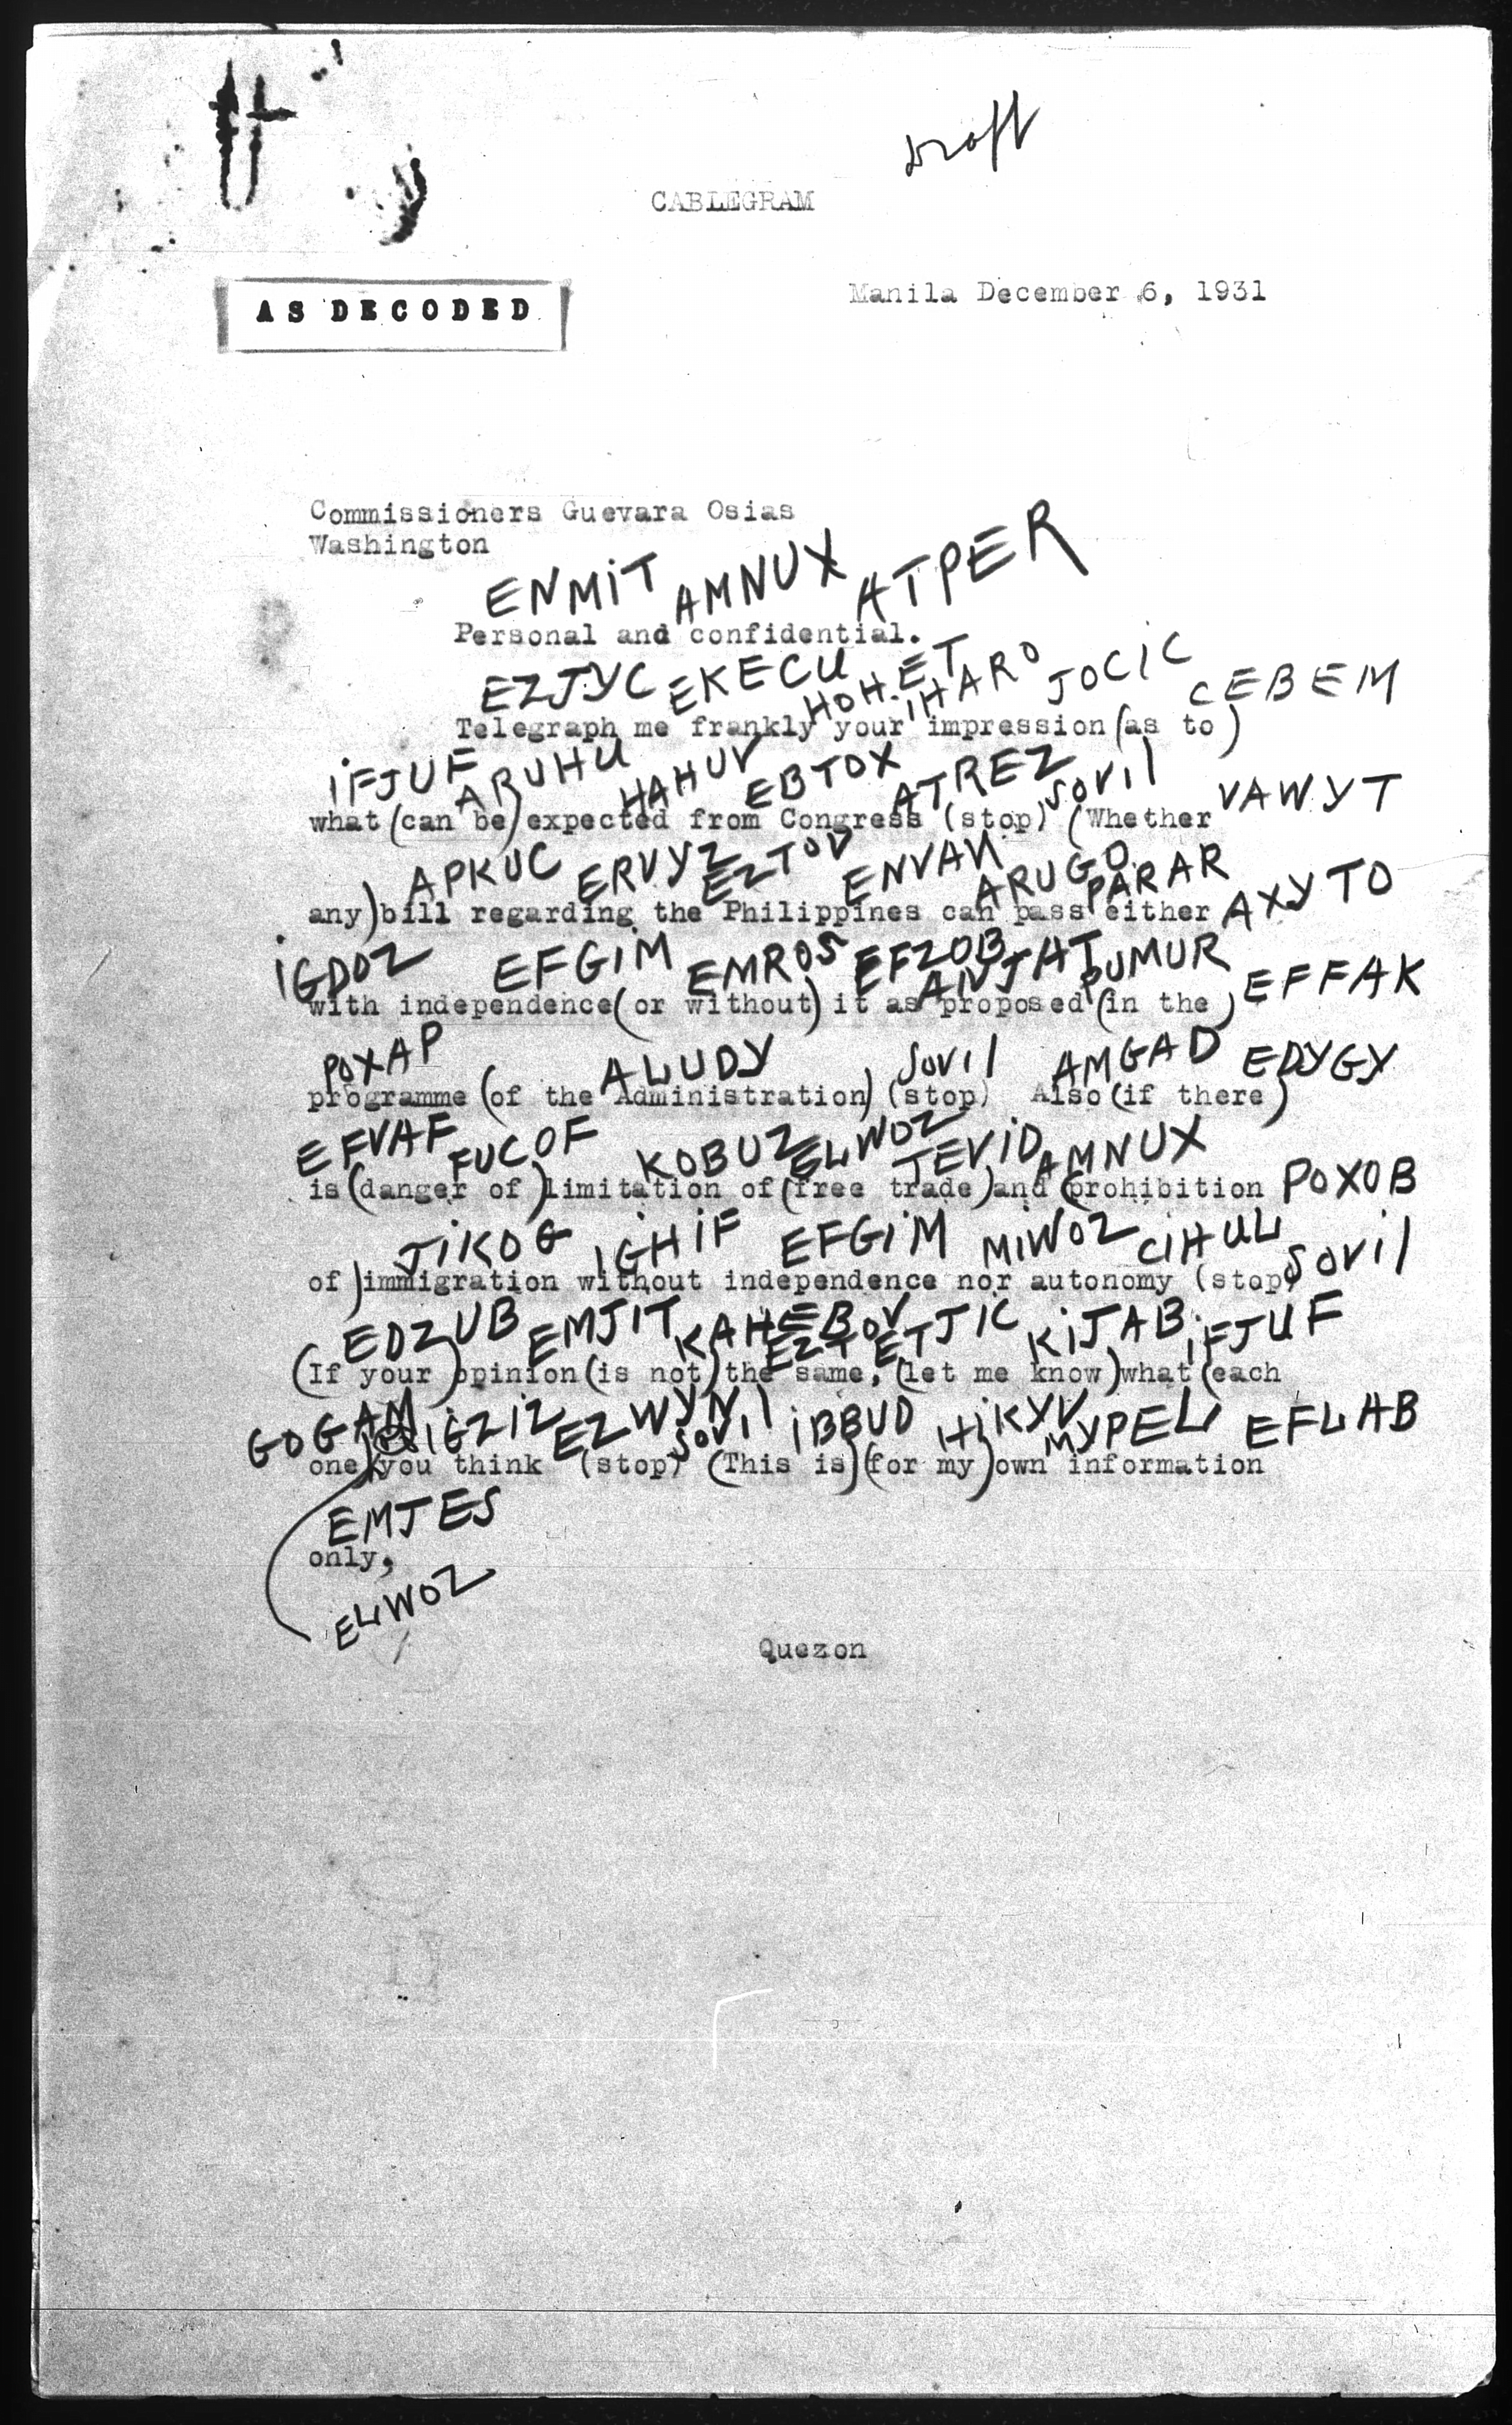 Draft
CABLEGRAM
AS DECODED
Manila December 6, 1931
Commissioners Guevara Osias
Washington
ENMIT AMNUX ATPER
Personal and confidential.
EZJYC EKECU HOHET IHARO JOCIC CEBEM
Telegraph me frankly your impression (as to)
IFJUF ARUHU HAHUV EBTOX ATREZ SOVIL VAWYT
what (can be) expected from Congress (stop) (Whether
APKUC ERVYZ EZTOV ENVAN ARUGO PARAR AXYTO
any) bill regarding the Philippines can pass either
IGDOZ EFGIM EMROS EFZOB ANJAT PUMUR EFFAK
with independence (or without) it as proposed (in the)
POXAP ALUDY SOVIL AMGAD EDYGY
programme (of the Administration) (stop) Also (if there)
EFVAF FUCOF KOBUZ ELWOZ JEVID AMNUX POXOB
is (danger of) limitation of (free trade) and (prohibition
JIKOG IGHIF EFGIM MIWOZ CIHUL SOVIL
of) immigration without independence nor autonomy (stop)
EDZUB EMJIT KAHEB EZTOV ETJIC KIJAB IFJUF
(If your) opinion (is not) the same, (let me know) what (each
GOGAM IGZIZ EZWYN SOVIL IBBUD HIKYV MYPEL EFLAB
one) you think (stop) (This is) (for my) own information
EMJES
only,
ELWOZ
Quezon